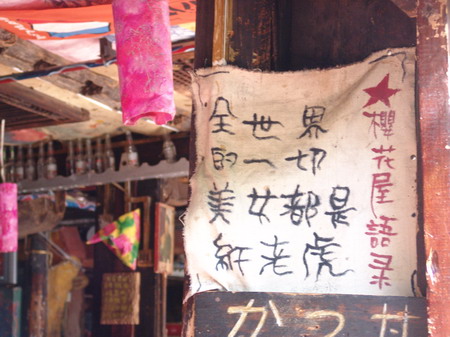 ★櫻花屋語录
全世界
的一切
美女都是
紙老虎
かつ